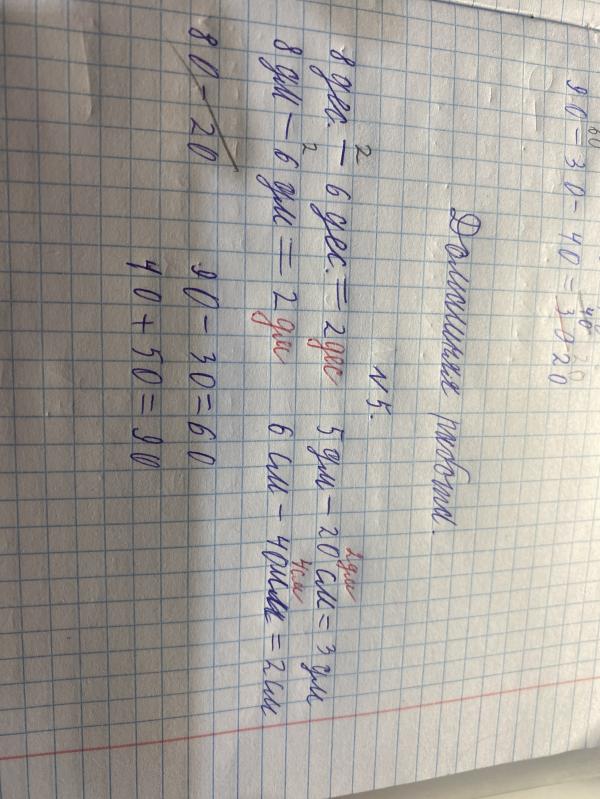 60
90 - 30 - 40 = 20
Домашняя работа.
№5.
8 дес. - 6 дес. = 2 дес
5 дм - 20 см = 3 дм
2 дм
8 дм - 6 дм = 2 дм
6 см - 40 мм = 2 см
4 см
80 - 20
90 - 30 = 60
40 + 50 = 90